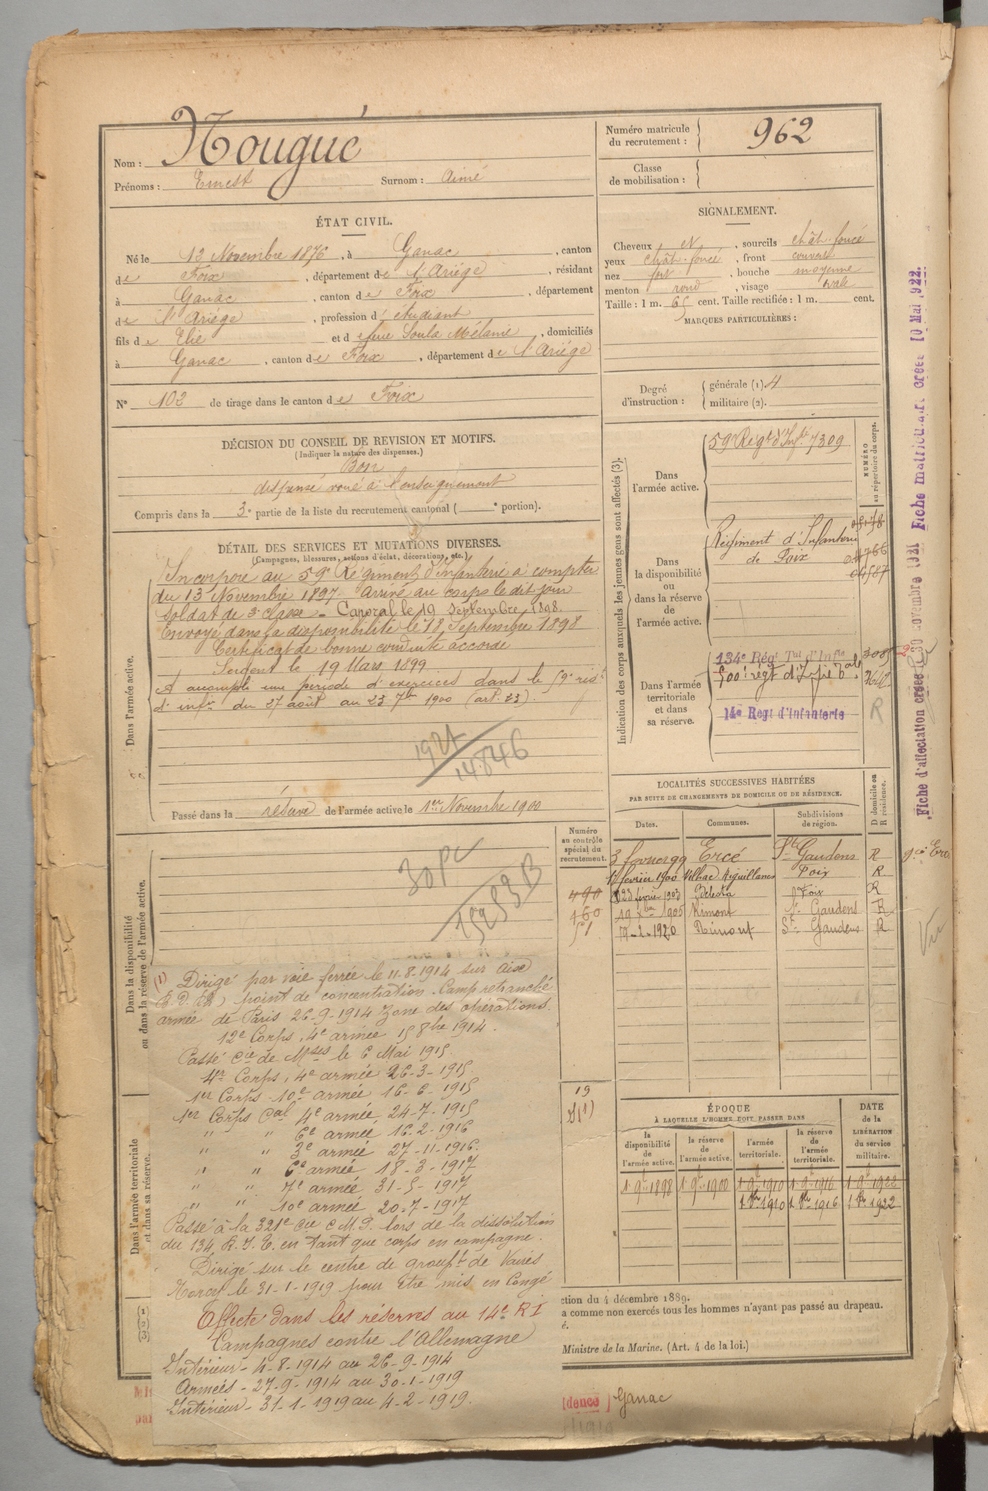 Nom : Nougué
Prénoms : Ernest Surnom : Aimé
Numéro matricule du recrutement : 962
Classe de mobilisation :
ÉTAT CIVIL.
Né le 13 Novembre 1876, à Ganac, canton
de Foix, département de l'Ariége, résidant
à Ganac, canton de Foix, département
de l'Ariége, profession d'étudiant
fils de Elie et de feue Soula Mélanie, domiciliés
à Ganac, canton de Foix, département de l'Ariége
N° 103 de tirage dans le canton de Foix
SIGNALEMENT.
Cheveux N, sourcils chât. foncé
yeux chât. foncé, front couvert
nez fort, bouche moyenne
menton rond, visage ovale
Taille : 1 m. 65 cent. Taille rectifiée : 1 m. cent.
MARQUES PARTICULIÈRES :
Degré d'instruction : générale (1). 4
militaire (2).
DÉCISION DU CONSEIL DE REVISION ET MOTIFS.
(Indiquer la nature des dispenses.)
Bon
dispensé voué à l'enseignement
Compris dans la 3e partie de la liste du recrutement cantonal ( e portion).
DÉTAIL DES SERVICES ET MUTATIONS DIVERSES.
(Campagnes, blessures, actions d'éclat, décorations, etc.)
Dans l'armée active.
Incorporé au 59e Régiment d'infanterie à compter
du 13 Novembre 1897. Arrivé au corps le dit jour
Soldat de 2e classe. Caporal le 19 Septembre 1898.
Envoyé dans la disponibilité le 18 Septembre 1898
Certificat de bonne conduite accordé
Sergent le 19 Mars 1899
A accompli une période d'exercices dans le 59e régt
d'infie du 27 août au 23 7bre 1900 (art. 23).
1921
14846
Passé dans la réserve de l'armée active le 1er Novembre 1900
Indication des corps auxquels les jeunes gens sont affectés (3).
NUMÉRO au répertoire du corps.
Dans l'armée active.
59e Régt d'Infie 7309
Dans la disponibilité ou dans la réserve de l'armée active.
Régiment d'Infanterie
de Foix
Dans l'armée territoriale et dans sa réserve.
134e Régt Tal d'Infie
100e régt d'Infie Tale
14e Régt d'Infanterie
R
LOCALITÉS SUCCESSIVES HABITÉES
PAR SUITE DE CHANGEMENTS DE DOMICILE OU DE RÉSIDENCE.
Dates. Communes. Subdivisions de région. D domicile ou R résidence.
3 février 99 Ercé St Gaudens R
11 février 1900 Villhac Aiguillanes Foix R
23 février 1903 Bélesta Foix R
19 Xbre 1905 Rimont St Gaudens R
19-2-1920 Rimont St Gaudens R
Numéro au contrôle spécial du recrutement.
490
460
51
Dans la disponibilité ou dans la réserve de l'armée active.
30 PC
15253 B
(1) Dirigé par voie ferrée le 11.8.1914 sur Oise
point de concentration. Camp retranché
armée de Paris 26-9-1914 Zone des opérations.
12e Corps, 4e armée 15 8bre 1914.
Passé Cie de Mses le 6 Mai 1915
4er Corps, 4e armée 26-3-1915
1er Corps 10e armée 16-6-1915
1er Corps Cal 4e armée 24-7-1915
" " 6e armée 16-2-1916
" " 3e armée 27-11-1916.
" " 6e armée 18-3-1917
" " 7e armée 31-5-1917
" " 10e armée 20-7-1917
Passé à la 321e Cie C M P. lors de la dissolution
du 134 R.I.T. en tant que corps en campagne.
Dirigé sur le centre de groupt de Vaires
Torcy le 31-1-1919 pour être mis en Congé
Affecté dans les réserves au 14e R I
Campagnes contre l'Allemagne
Intérieur - 4-8-1914 au 26-9-1914
Armées - 27-9-1914 au 30-1-1919
Intérieur - 31-1-1919 au 4-2-1919.
Dans l'armée territoriale et dans sa réserve.
19
ÉPOQUE
À LAQUELLE L'HOMME DOIT PASSER DANS
la disponibilité de l'armée active. la réserve de l'armée active. l'armée territoriale. la réserve de l'armée territoriale. DATE de la LIBÉRATION du service militaire.
1 9bre 1898 1 9bre 1900 1 9bre 1910 1 9bre 1916 1 9bre 1922
1910 1916 1922
ction du 4 décembre 1889.
a comme non exercés tous les hommes n'ayant pas passé au drapeau.
é.
Ministre de la Marine. (Art. 4 de la loi.)
[dence] Ganac
1919
Fiche d'affectation créée le 30 novembre 1921 Fiche matriculaire créée 10 Mai 1922.